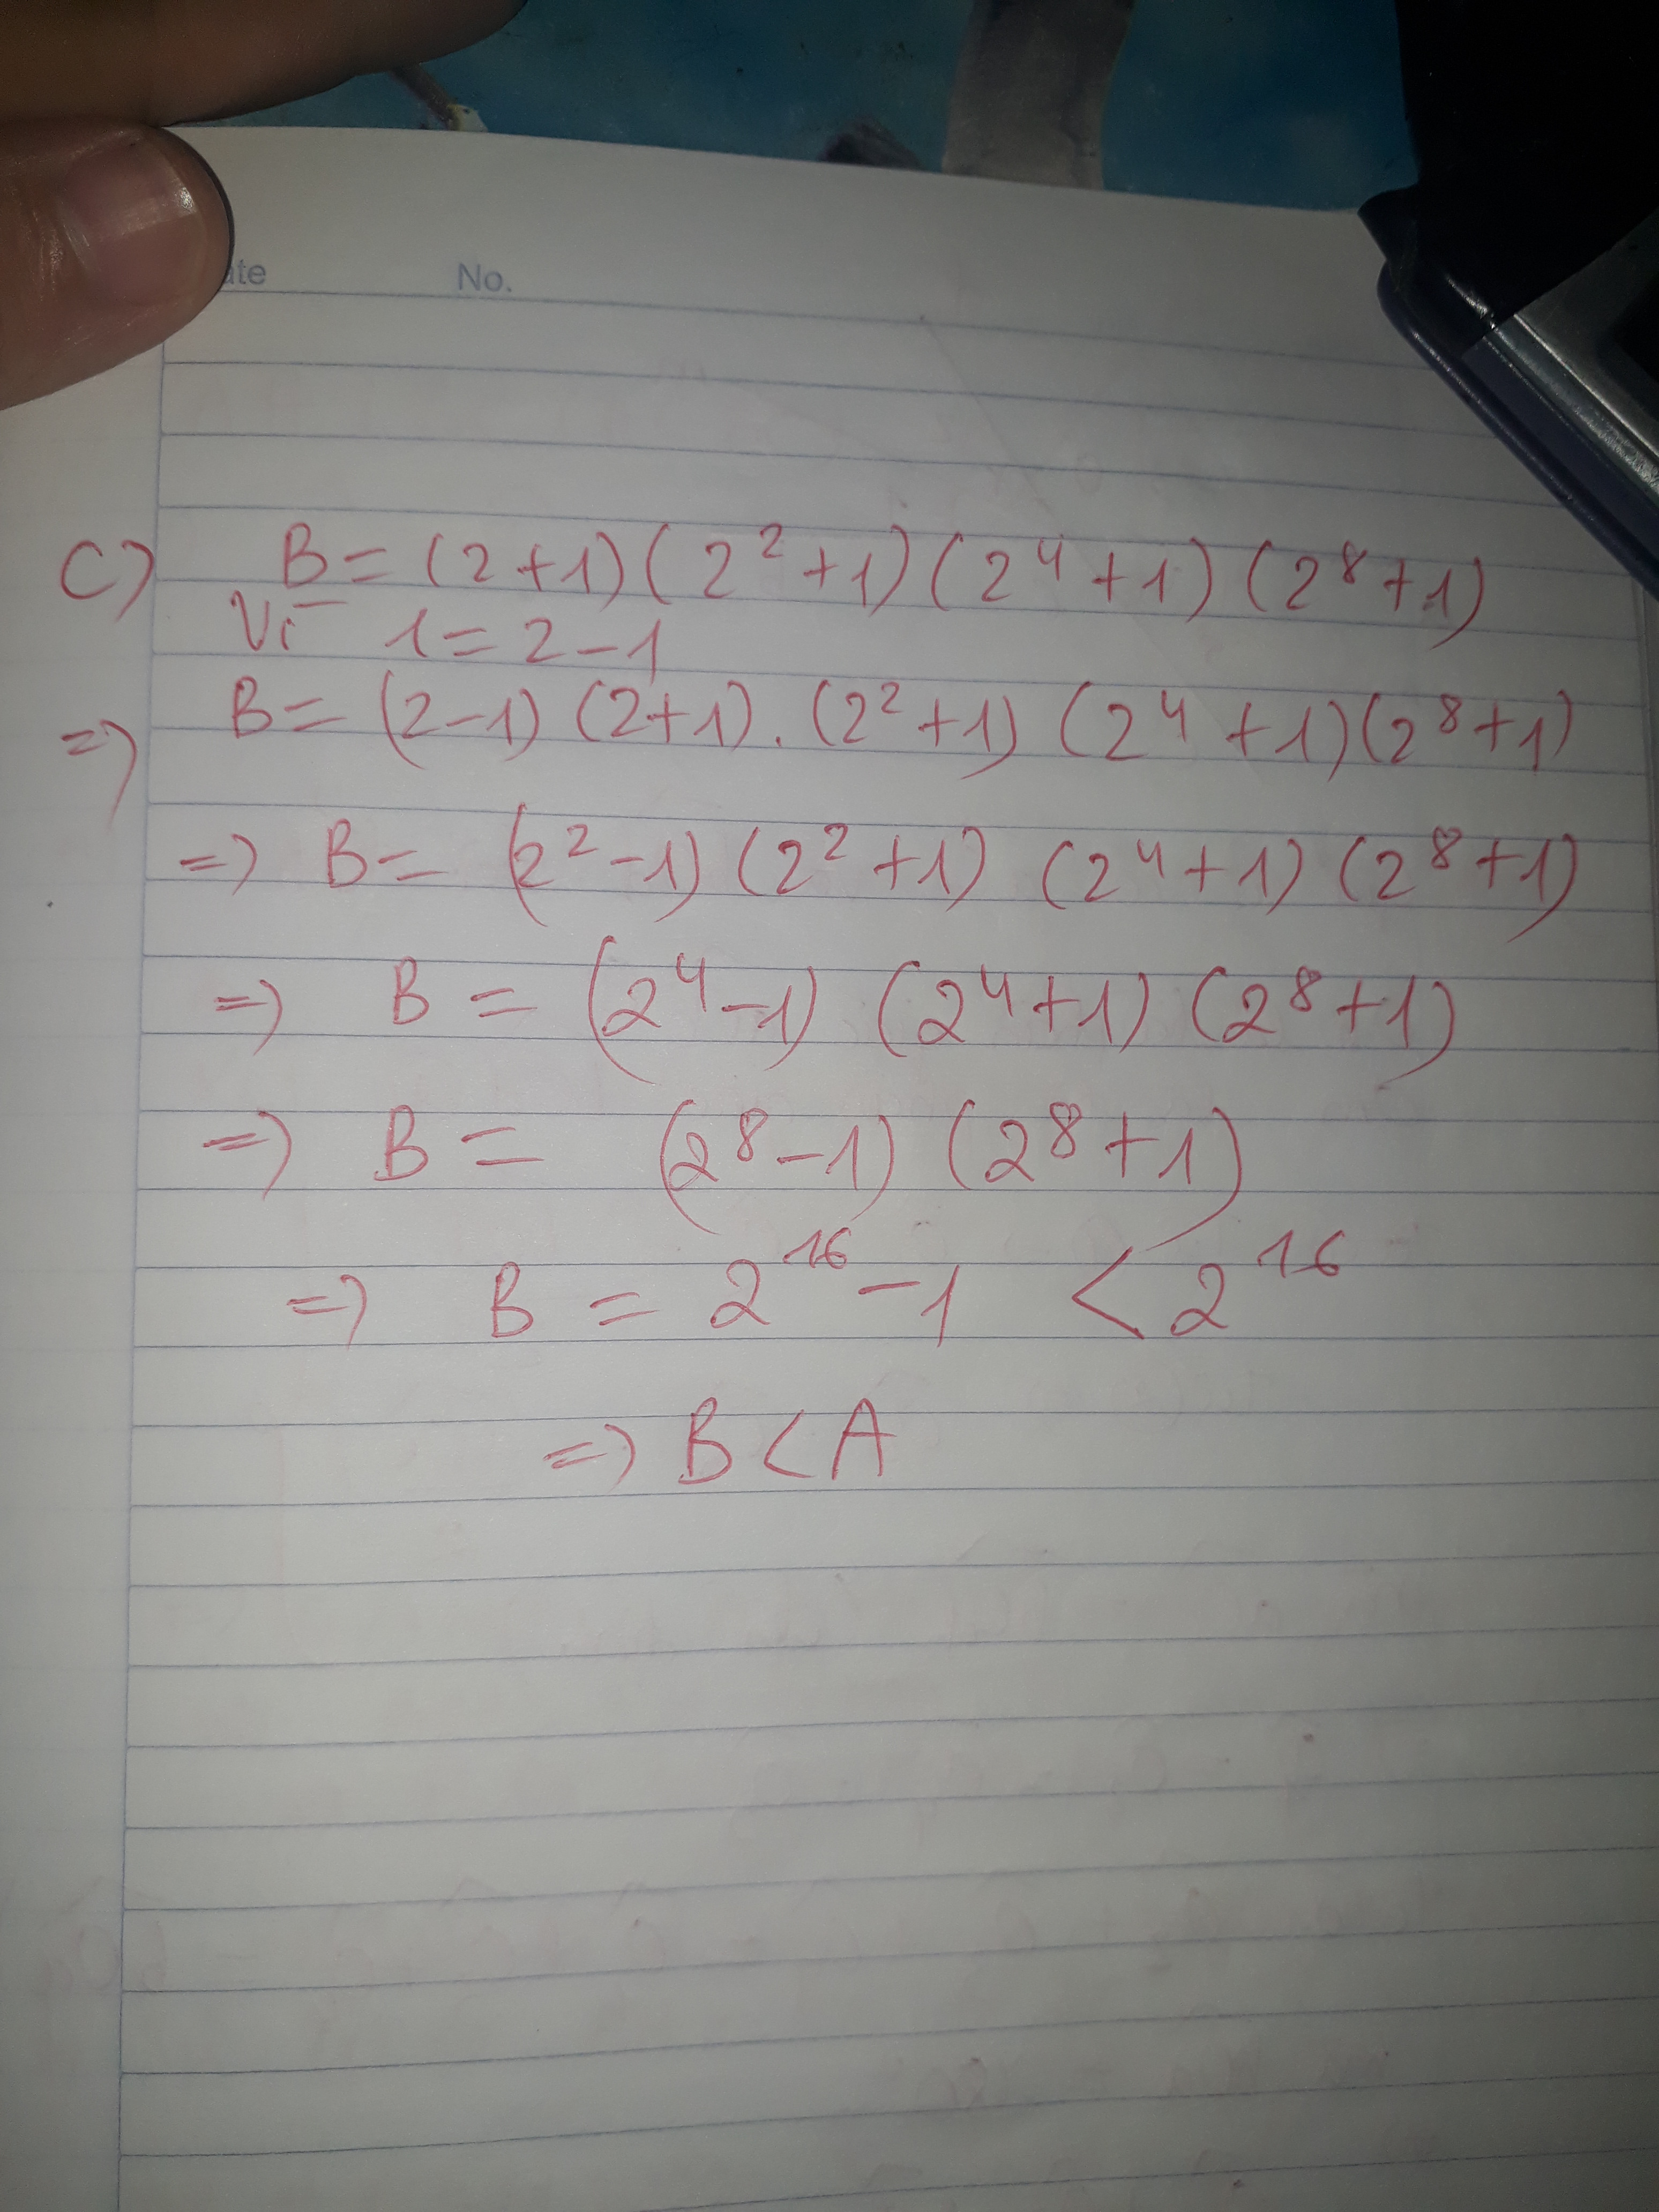 ate No.
C) B = (2+1)(2²+1)(2⁴+1)(2⁸+1)
Vì 1 = 2-1
=> B = (2-1)(2+1).(2²+1)(2⁴+1)(2⁸+1)
=> B = (2²-1)(2²+1)(2⁴+1)(2⁸+1)
=> B = (2⁴-1)(2⁴+1)(2⁸+1)
=> B = (2⁸-1)(2⁸+1)
=> B = 2¹⁶-1 < 2¹⁶
=> B < A